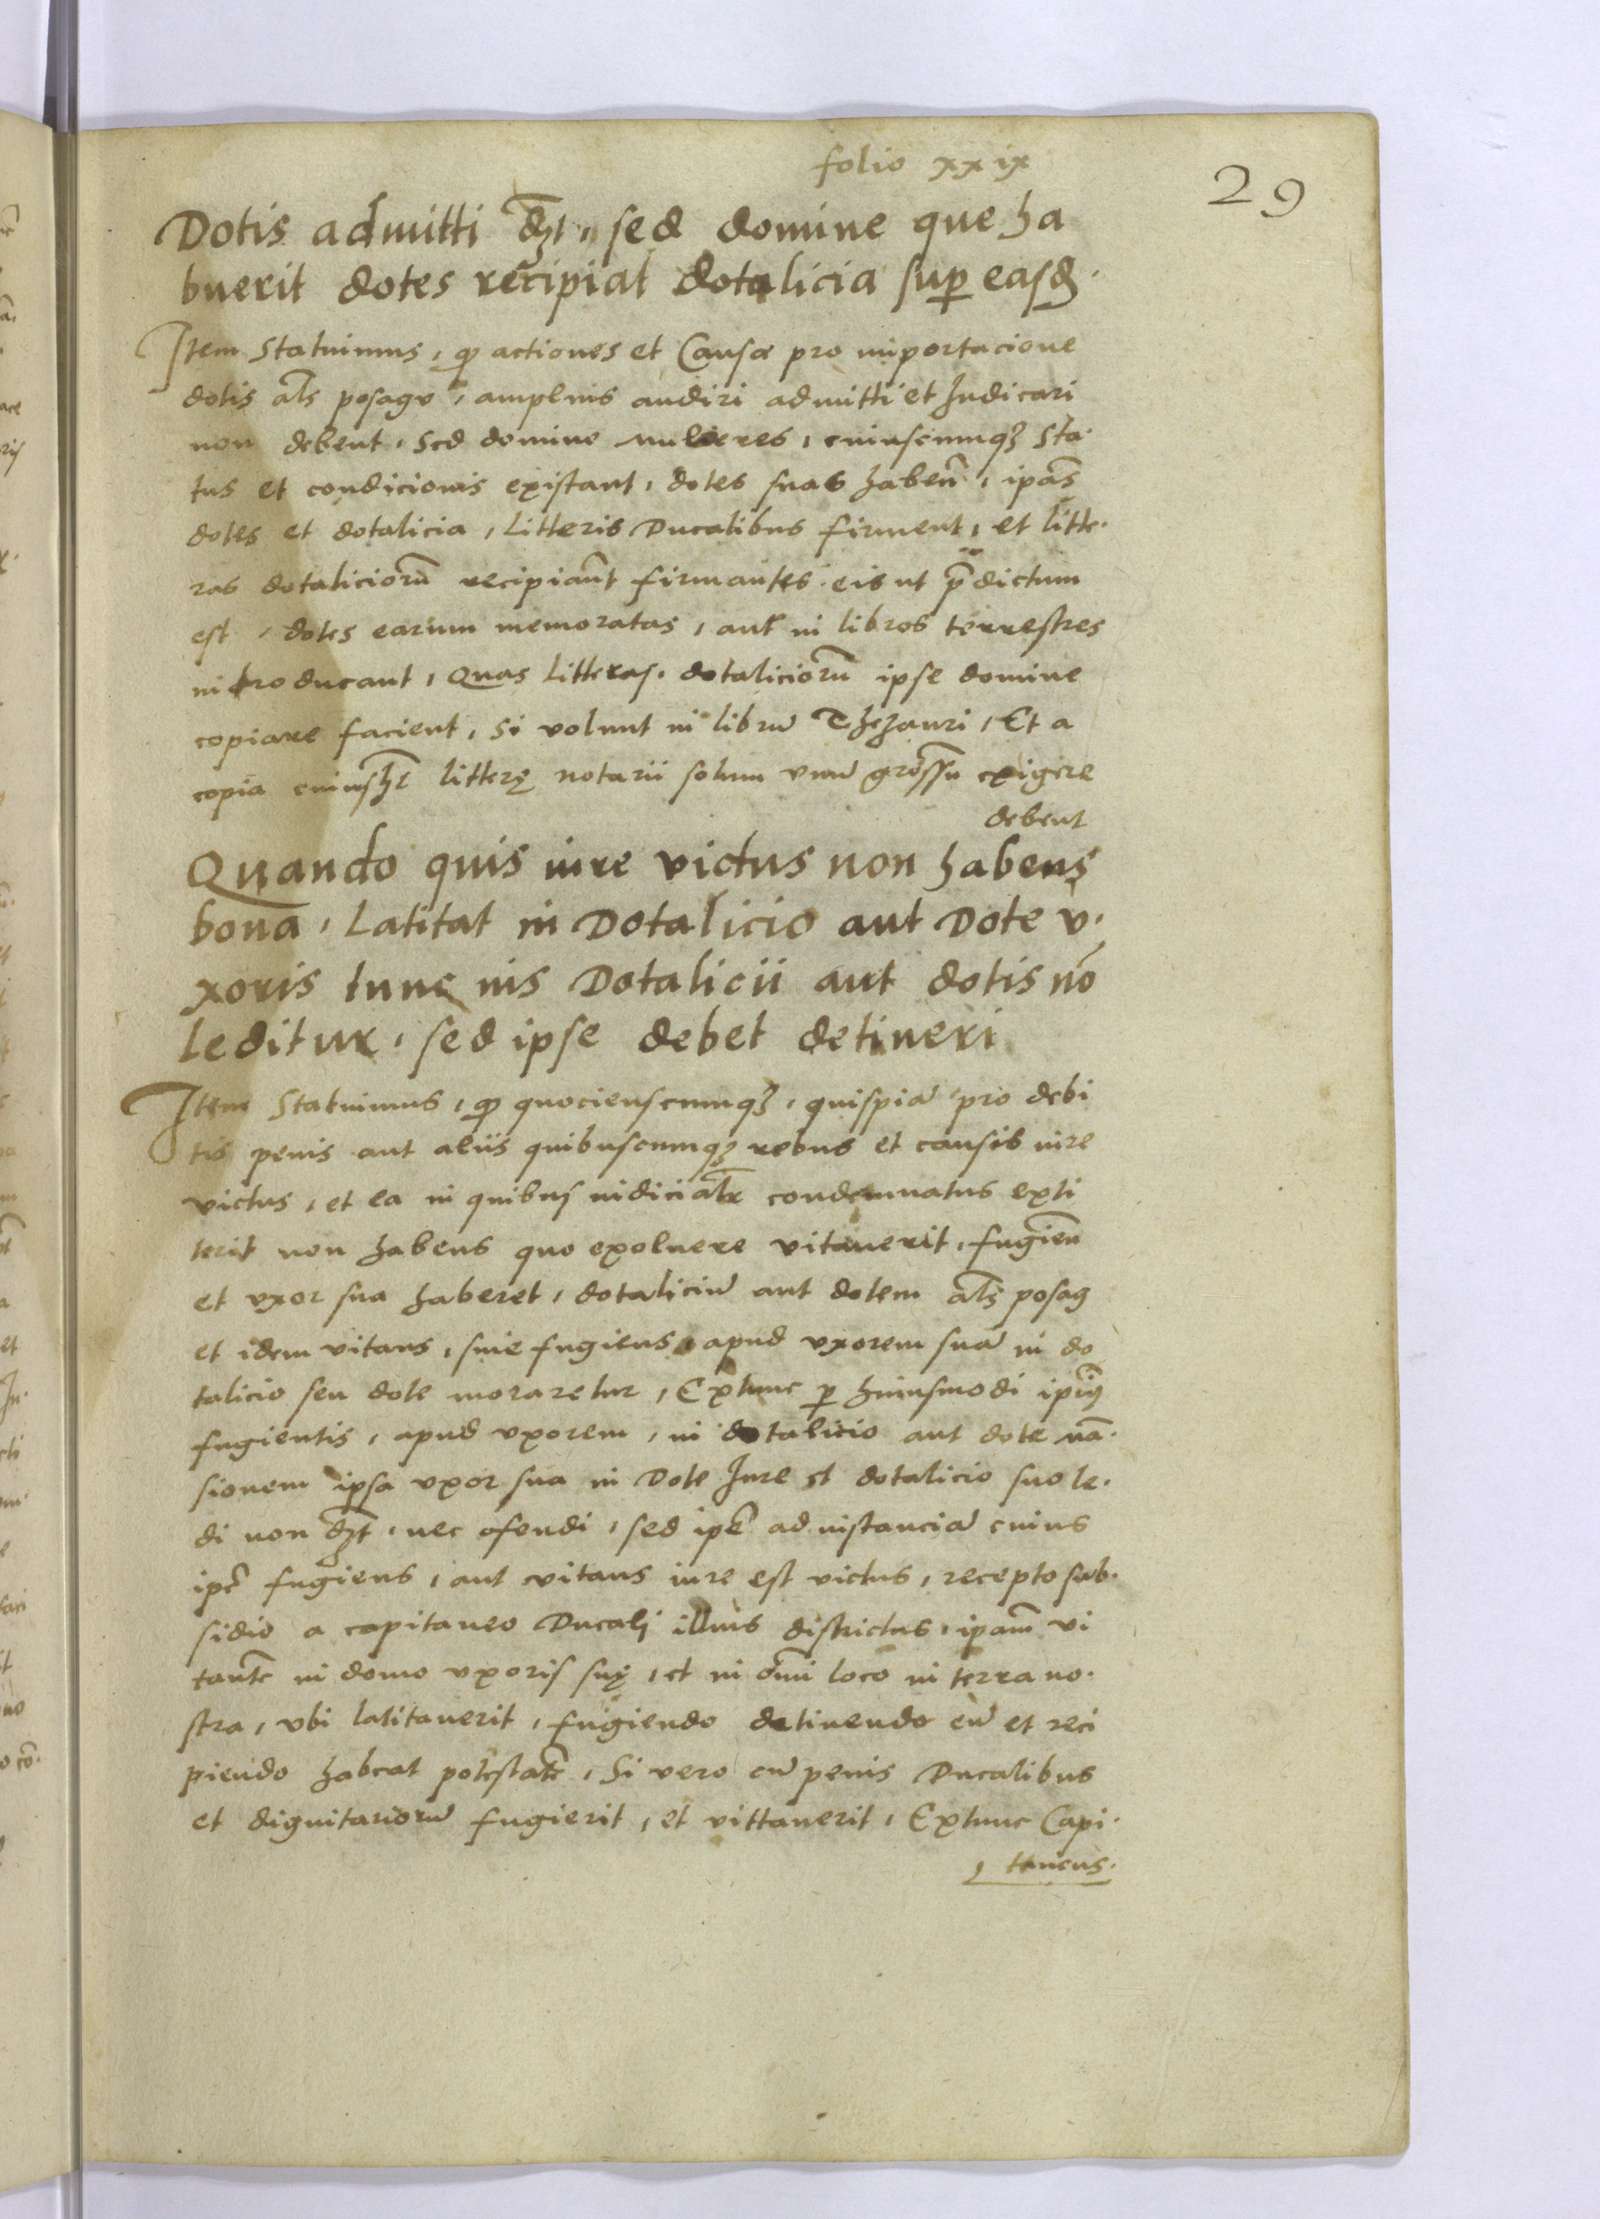 folio xxix
29
Dotis admitti dʒt, sed domine que ha
buerit dotes recipiat dotalicia suꝑ easd̃.
Item Statuimus, ꝙ actiones et Causæ pro importacione
dotis als̃ posagu, amplius audiri admitti et Iudicari
non debent, Sed domine mulieres, cuiuscunqʒ sta.
tus et condicionis existant, dotes suas haben̄, ipãs
dotes et dotalicia, Litteris Ducalibus firment, et litte.
ras dotaliciorū recipiant̄ firmantes eis ut p̄dictum
est, dotes earum memoratas, aut in libros terrestres
introducant, Quas Litteras. dotaliciorū ipse domine
copiare facient, Si volunt in librū Thezauri, Et a
copia cuiusʒt litterę notarii solum vnū grossū exigere
debent
Quando quis iure victus non habens
bona, Latitat in Dotalicio aut Dote v.
xoris tunc ius Dotalicii aut dotis nō
leditur, sed ipse debet detineri
Item Statuimus, ꝙ quocienscunqʒ, quispiā pro debi
tis penis aut aliis quibuscunqʒ rebus et causis iure
victus, et ea in quibus iudicialr̃ condemnatus exti
terit non habens quo exoluere vitauerit, fugien̄
et vxor sua haberet, dotaliciū aut dotem als̃ posag
et idem vitans, siue fugiens apud vxorem suā in do
talicio seu dote moraretur, Extunc ꝑ huiusmodi ipius̄
fugientis, apud vxorem, in dotalicio aut dote mā.
sionem ipsa vxor sua in Dote Iure et dotalicio suo le.
di non dʒt, nec ofendi, sed ipē ad instanciā cuius
ipē fugiens, aut vitans iure est victus, recepto sub.
sidio a capitaneo Ducali illius districtus, ipam̄ vi
tantē in domo vxoris suę, et in om̄i loco in terra no.
stra, vbi latitauerit, fugiendo detinendo eū et reci
piendo habeat potestatē, Si vero cū penis Ducalibus
et dignitariorū fugierit, et vittauerit, Extunc Capi.
taneus.